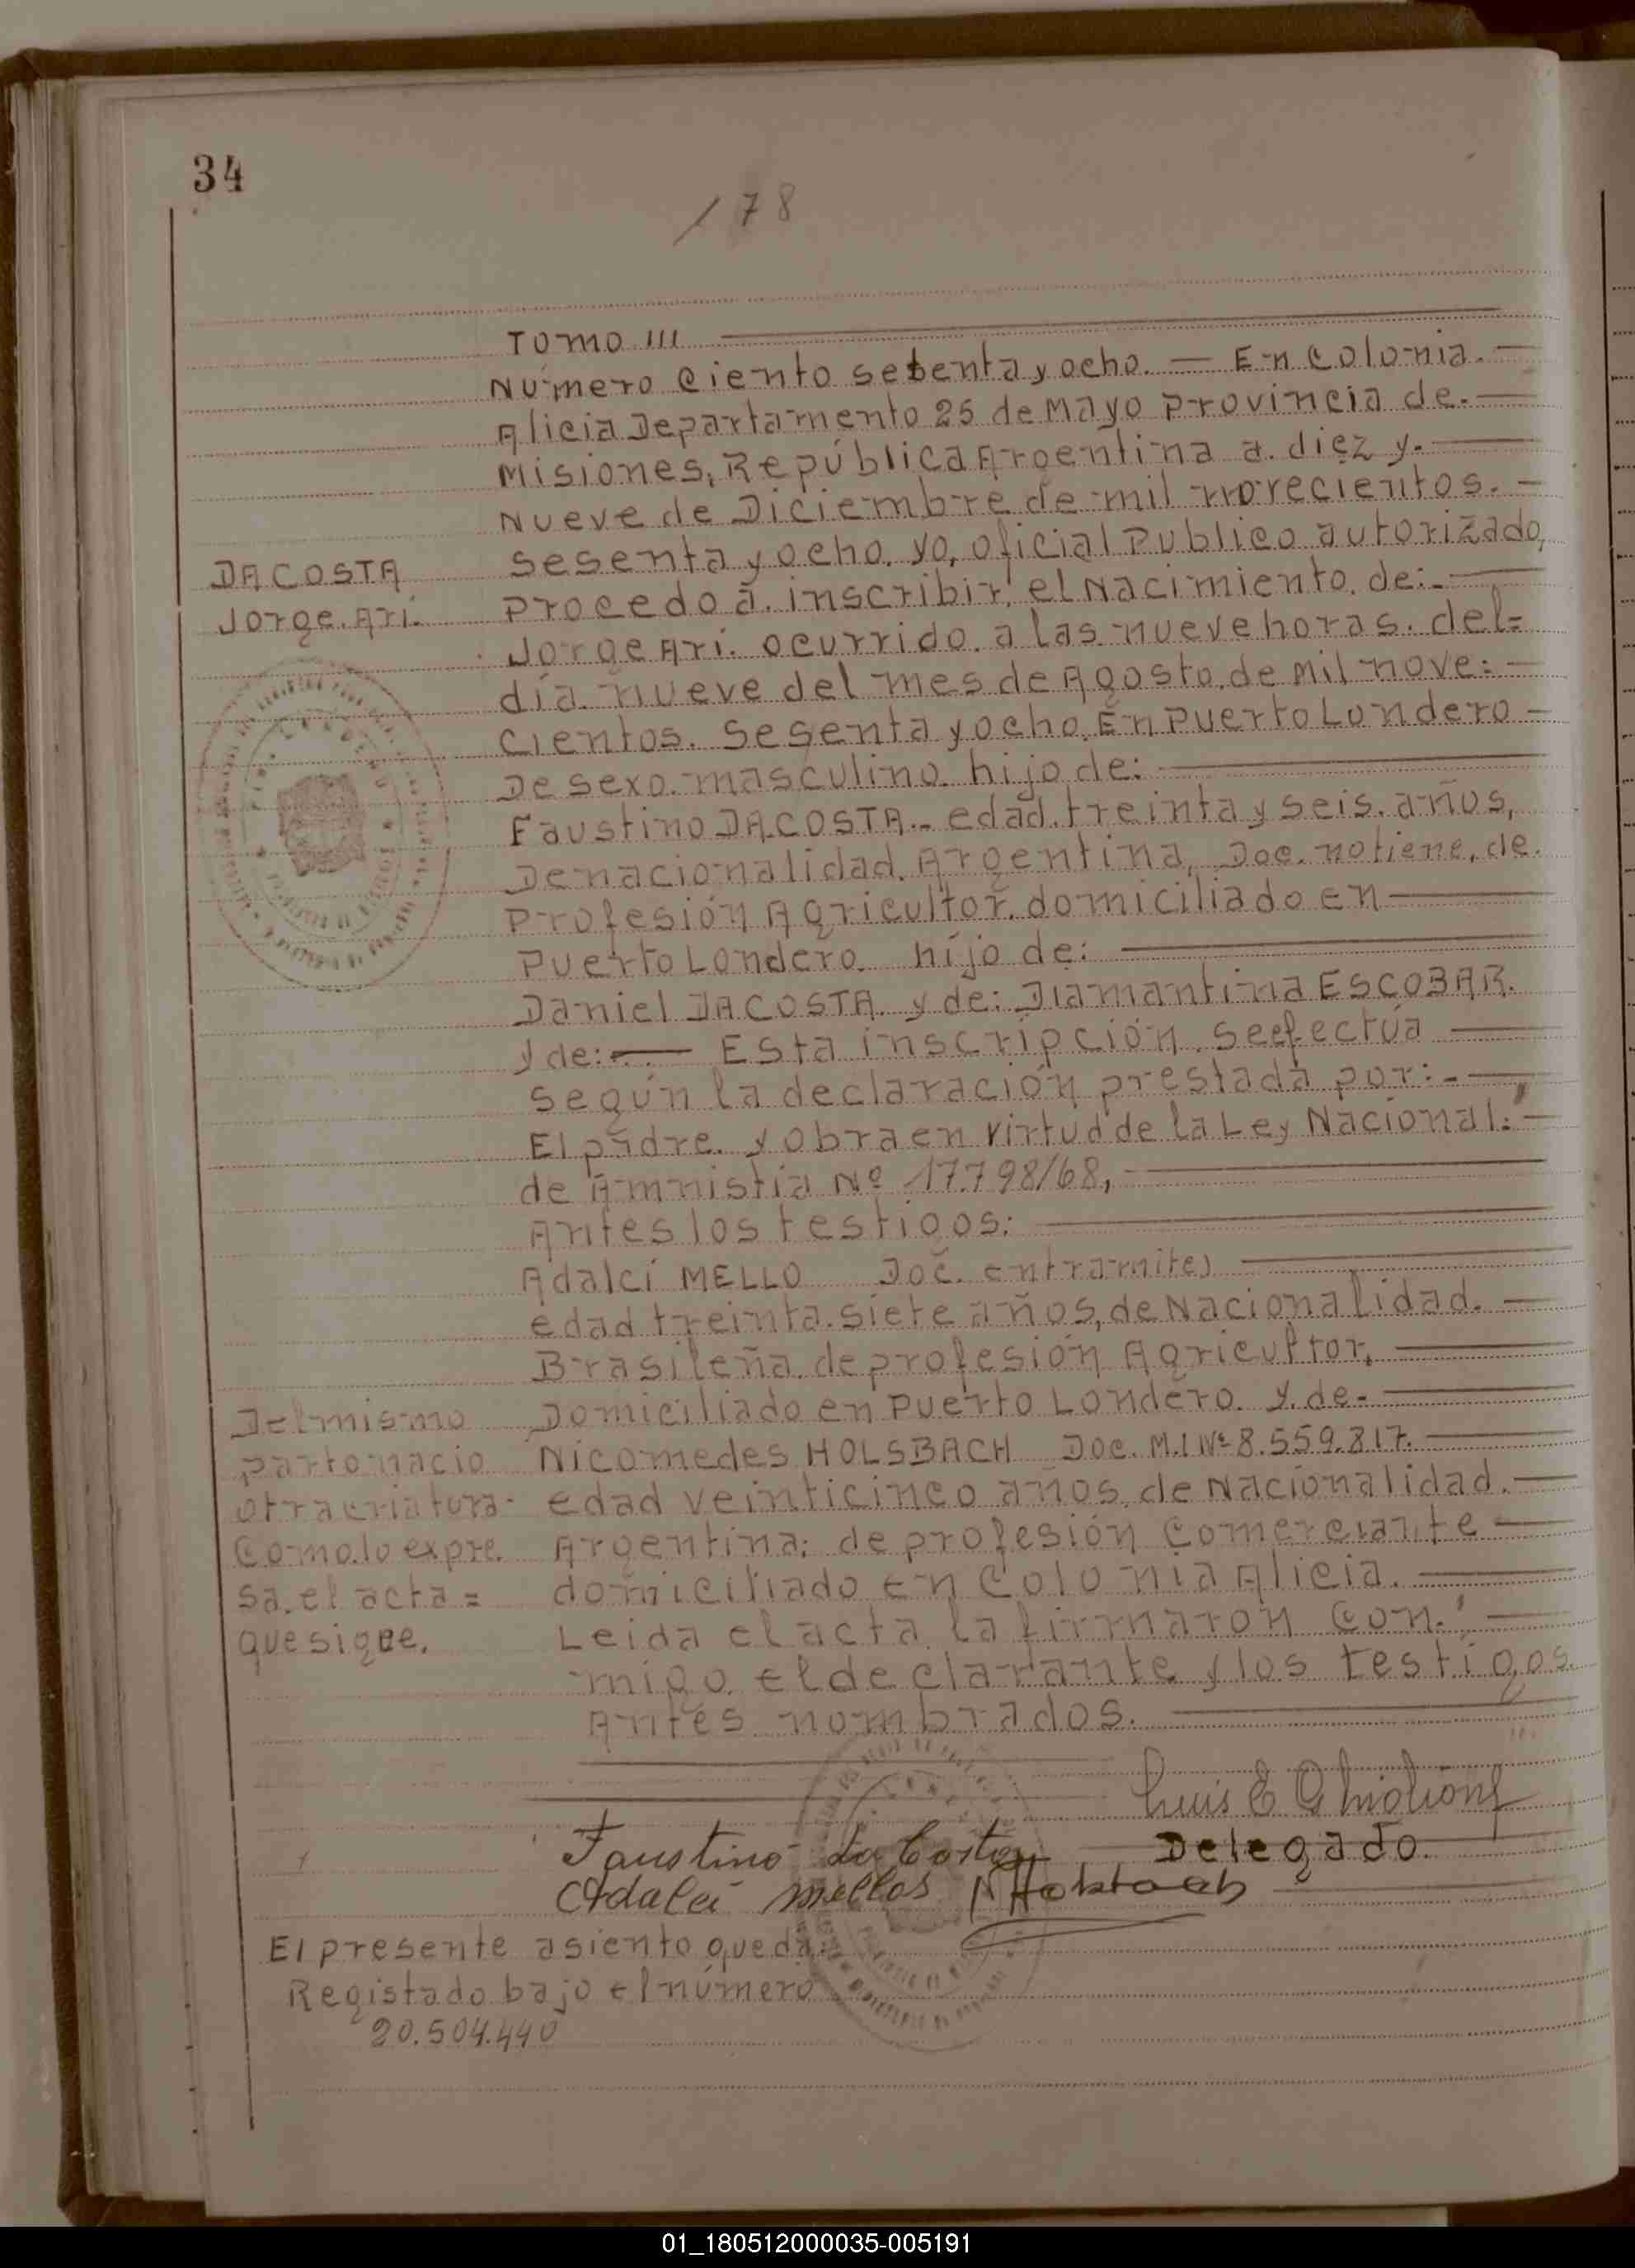 34
178
TOMO III
Número Ciento setenta y ocho. — En Colonia. —
Alicia Departamento 25 de Mayo Provincia de. —
Misiones, República Argentina a. diez y. —
Nueve de Diciembre de mil novecientos. —
sesenta y ocho. yo, oficial Publico autorizado,
DACOSTA
Procedo a. inscribir, el Nacimiento. de:. —
Jorge. Ari.
Jorge Ari. ocurrido. a las nueve horas. del=
día nueve del mes de Agosto. de Mil nove: —
Cientos. Sesenta y ocho. En Puerto Londero —
De sexo masculino. hijo de: —
Faustino DACOSTA.. edad. treinta y seis. años,
De nacionalidad. Argentina, Doc. no tiene, de.
Profesión Agricultor. domiciliado en —
Puerto Londero. hijo de: —
Daniel DACOSTA. y de: Diamantina ESCOBAR.
y de: — Esta inscripción. se efectúa —
según la declaración prestada por:. —
El padre. y obra en virtud de la Ley Nacional: —
de Amnistia Nº 17.798/68, —
Antes los testigos: —
Adalcí MELLO Doc. en tramites —
edad treinta. siete años, de Nacionalidad. —
Brasileña. de profesión Agricultor, —
Del mismo
Domiciliado en Puerto Londero. y. de- —
parto nacio
Nicomedes HOLSBACH Doc. M.I Nº 8.559.817. —
otra criatura-
edad veinticinco años, de Nacionalidad. —
Como.lo expre.
Argentina: de profesión Comerciante —
sa. el acta =
domiciliado en Colonia Alicia. —
que sigue.
Leida el acta la firmaron Con.' —
migo. el declarante y los testigos.
Antes nombrados. —
Luis E Ghiglione
Faustino da Costa
Delegado.
Adalci mellos N Holsbach
El presente asiento queda:
Registado bajo el número
20.504.440
01_180512000035-005191